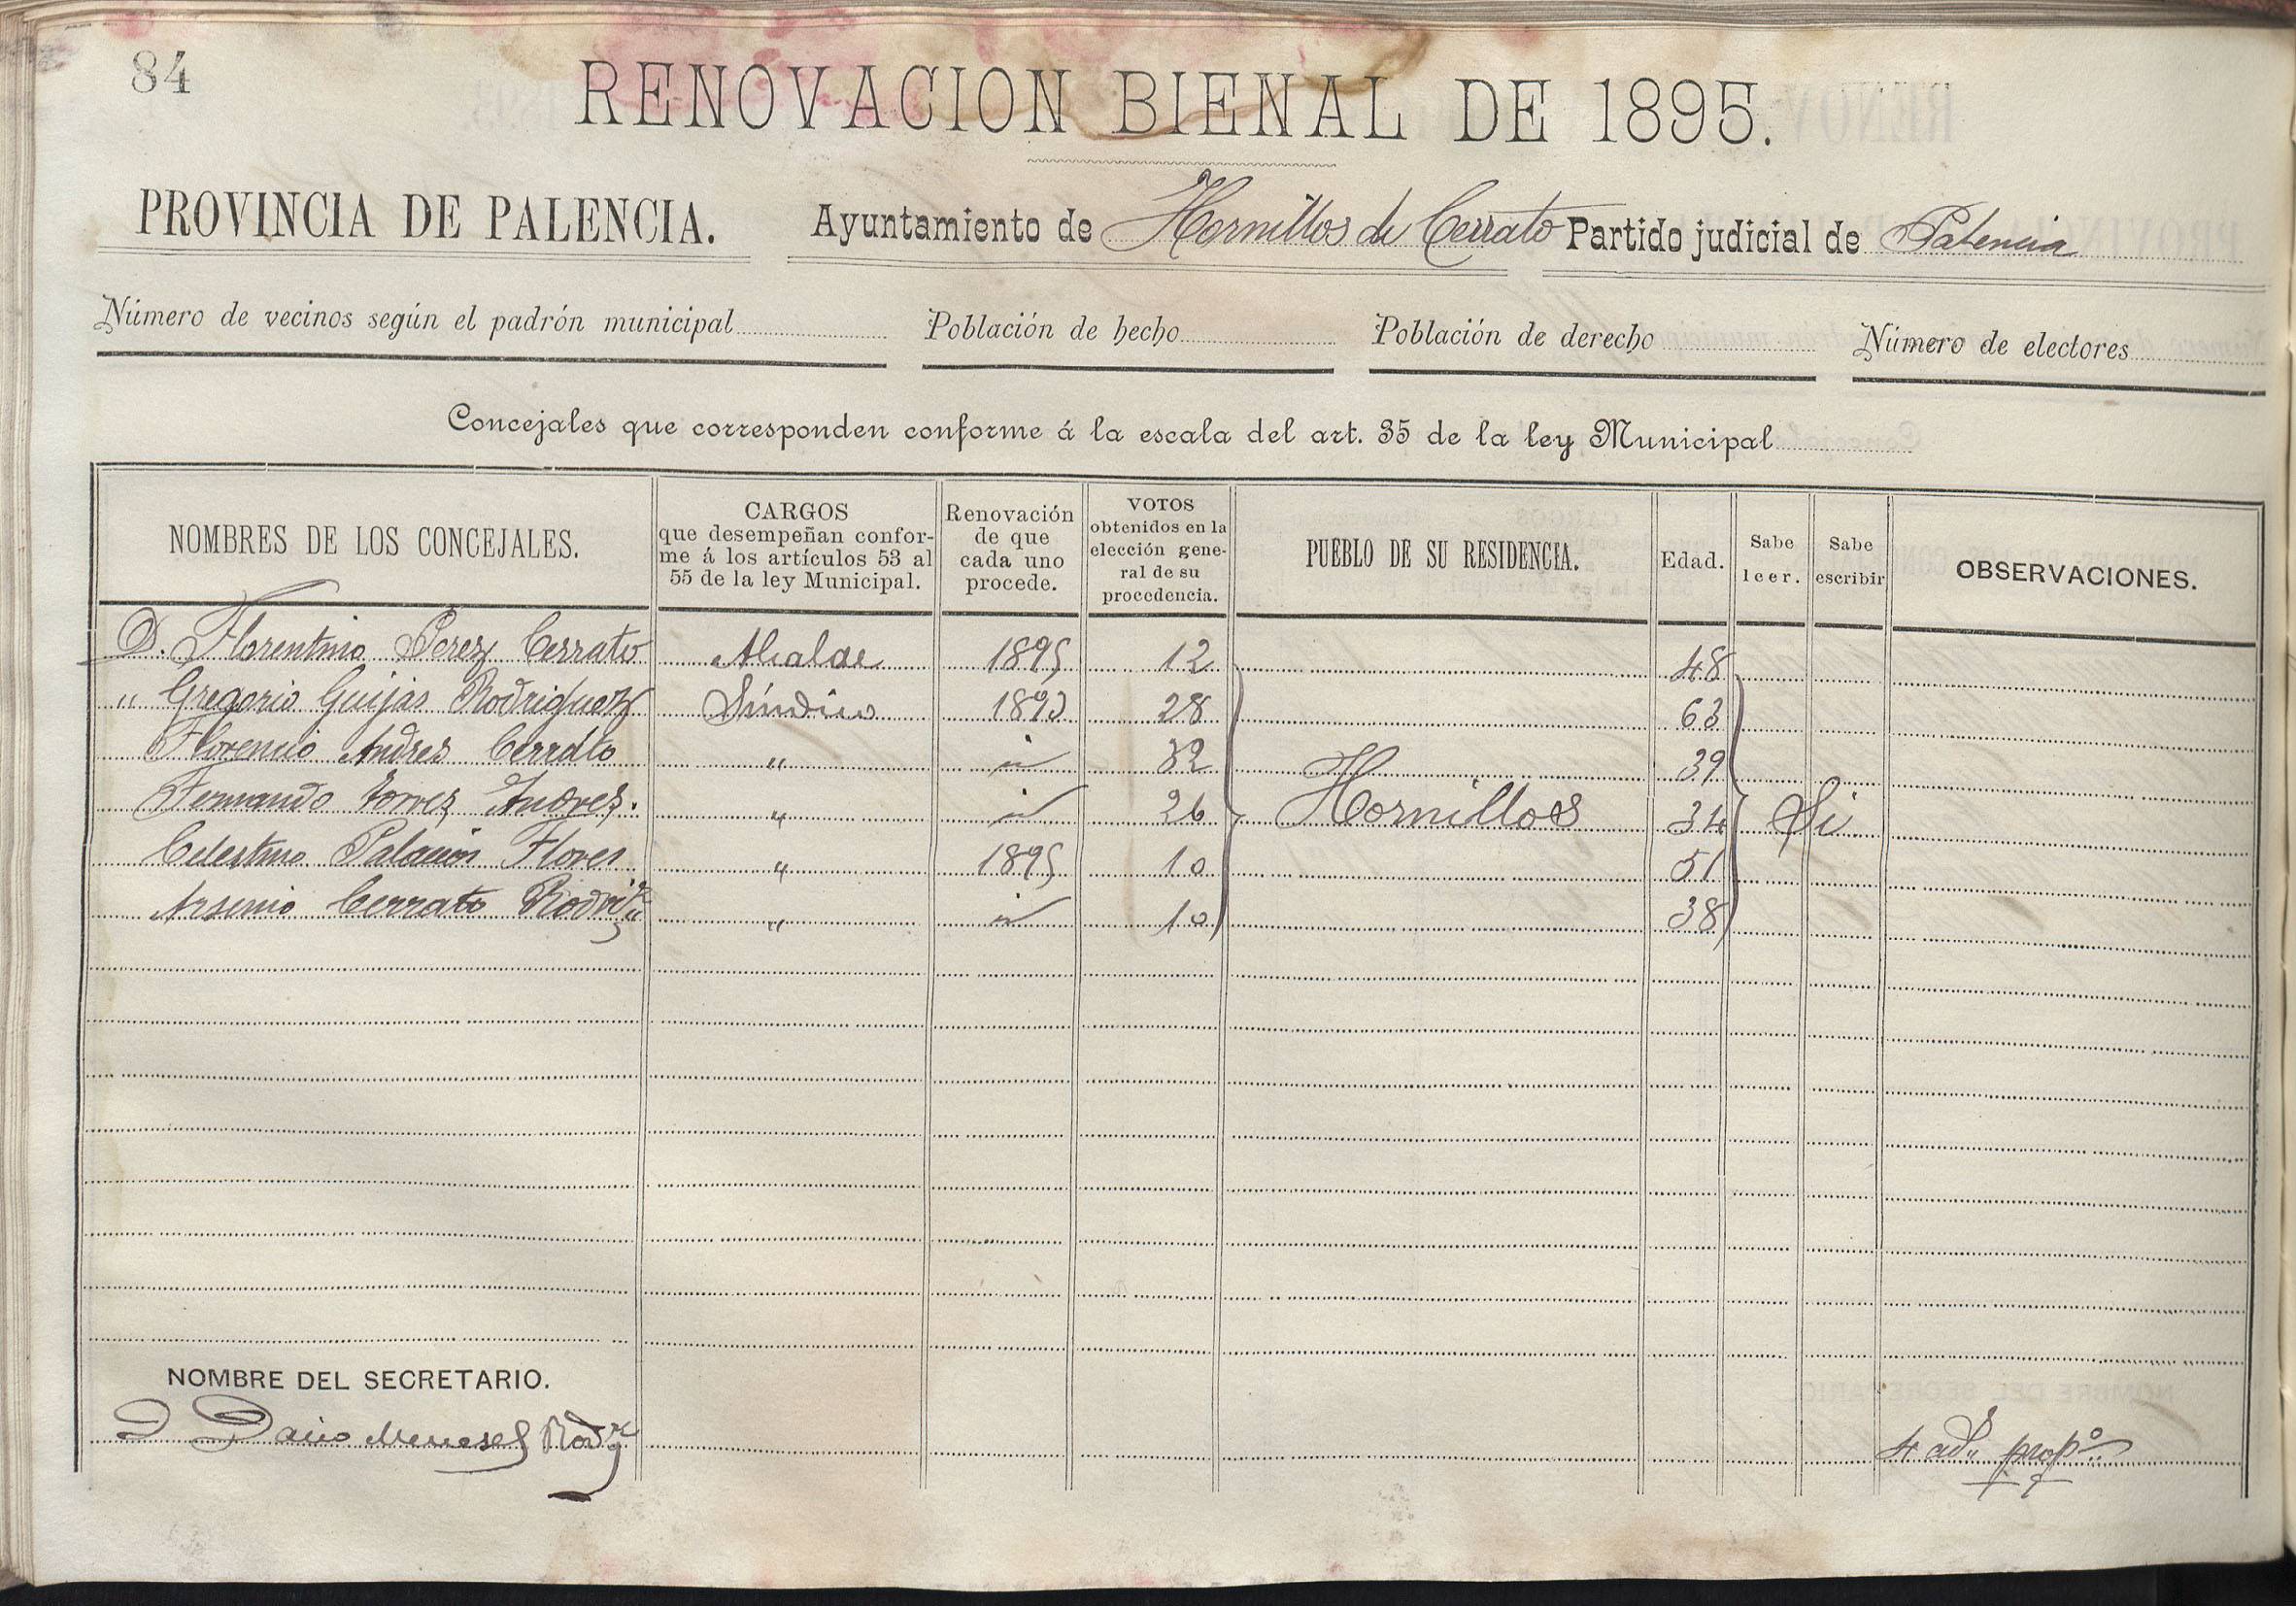 84
RENOVACION BIENAL DE 1895.
PROVINCIA DE PALENCIA. Ayuntamiento de Hornillos de Cerrato Partido judicial de Palencia
Número de vecinos según el padrón municipal Población de hecho Población de derecho Número de electores
Concejales que corresponden conforme á la escala del art. 35 de la ley Municipal
NOMBRES DE LOS CONCEJALES.
CARGOS
que desempeñan confor-
me á los artículos 53 al
55 de la ley Municipal.
Renovación
de que
cada uno
procede.
VOTOS
obtenidos en la
elección gene-
ral de su
procedencia.
PUEBLO DE SU RESIDENCIA.
Edad.
Sabe
leer.
Sabe
escribir
OBSERVACIONES.
D. Florentino Perez Cerrato Alcalde 1895 12 48
" Gregorio Guijas Rodriguez Síndico 1893 28 63
Florencio Andres Cerrato " id 32 39
Fernando Torres Andres. " id 26 Hornillos 34 Si
Celestino Palacios Flores " 1895 10 51
Arsenio Cerrato Rodrig.z " id 10 38
NOMBRE DEL SECRETARIO.
D Dario Meneses Rodz
4 ad. prop.o